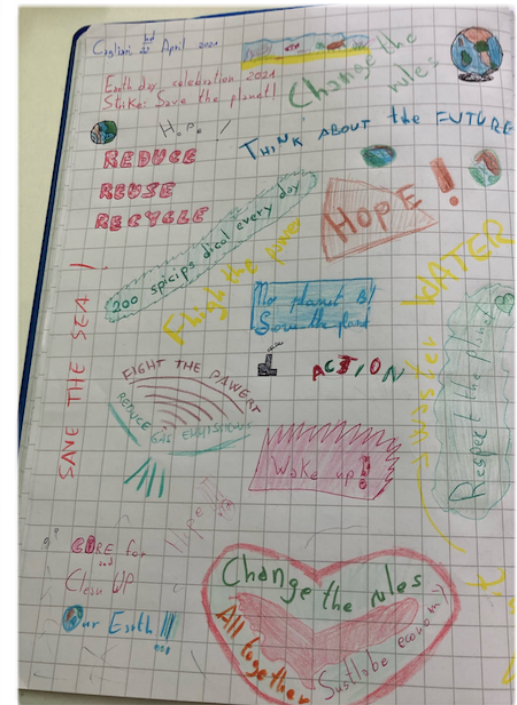 Cagliari 22nd April 2021
Earth day celebration 2021
Strike: Save the planet!
Change the
rules
Hope!
THINK ABOUT the FUTURE
REDUCE
REUSE
RECYCLE
HOPE!
200 spicips dical every day
Fhigh the power
WATER
No planet B!
Save the planet
SAVE THE SEA!
ACTION
FIGHT THE PAWERT
REDUCE
GAS EMMISIONS
Respect the planet
Wake up!
Hope
CARE for
and
Clean UP
Our Earth!!!
Change the rules
All together
Sustlobe economy